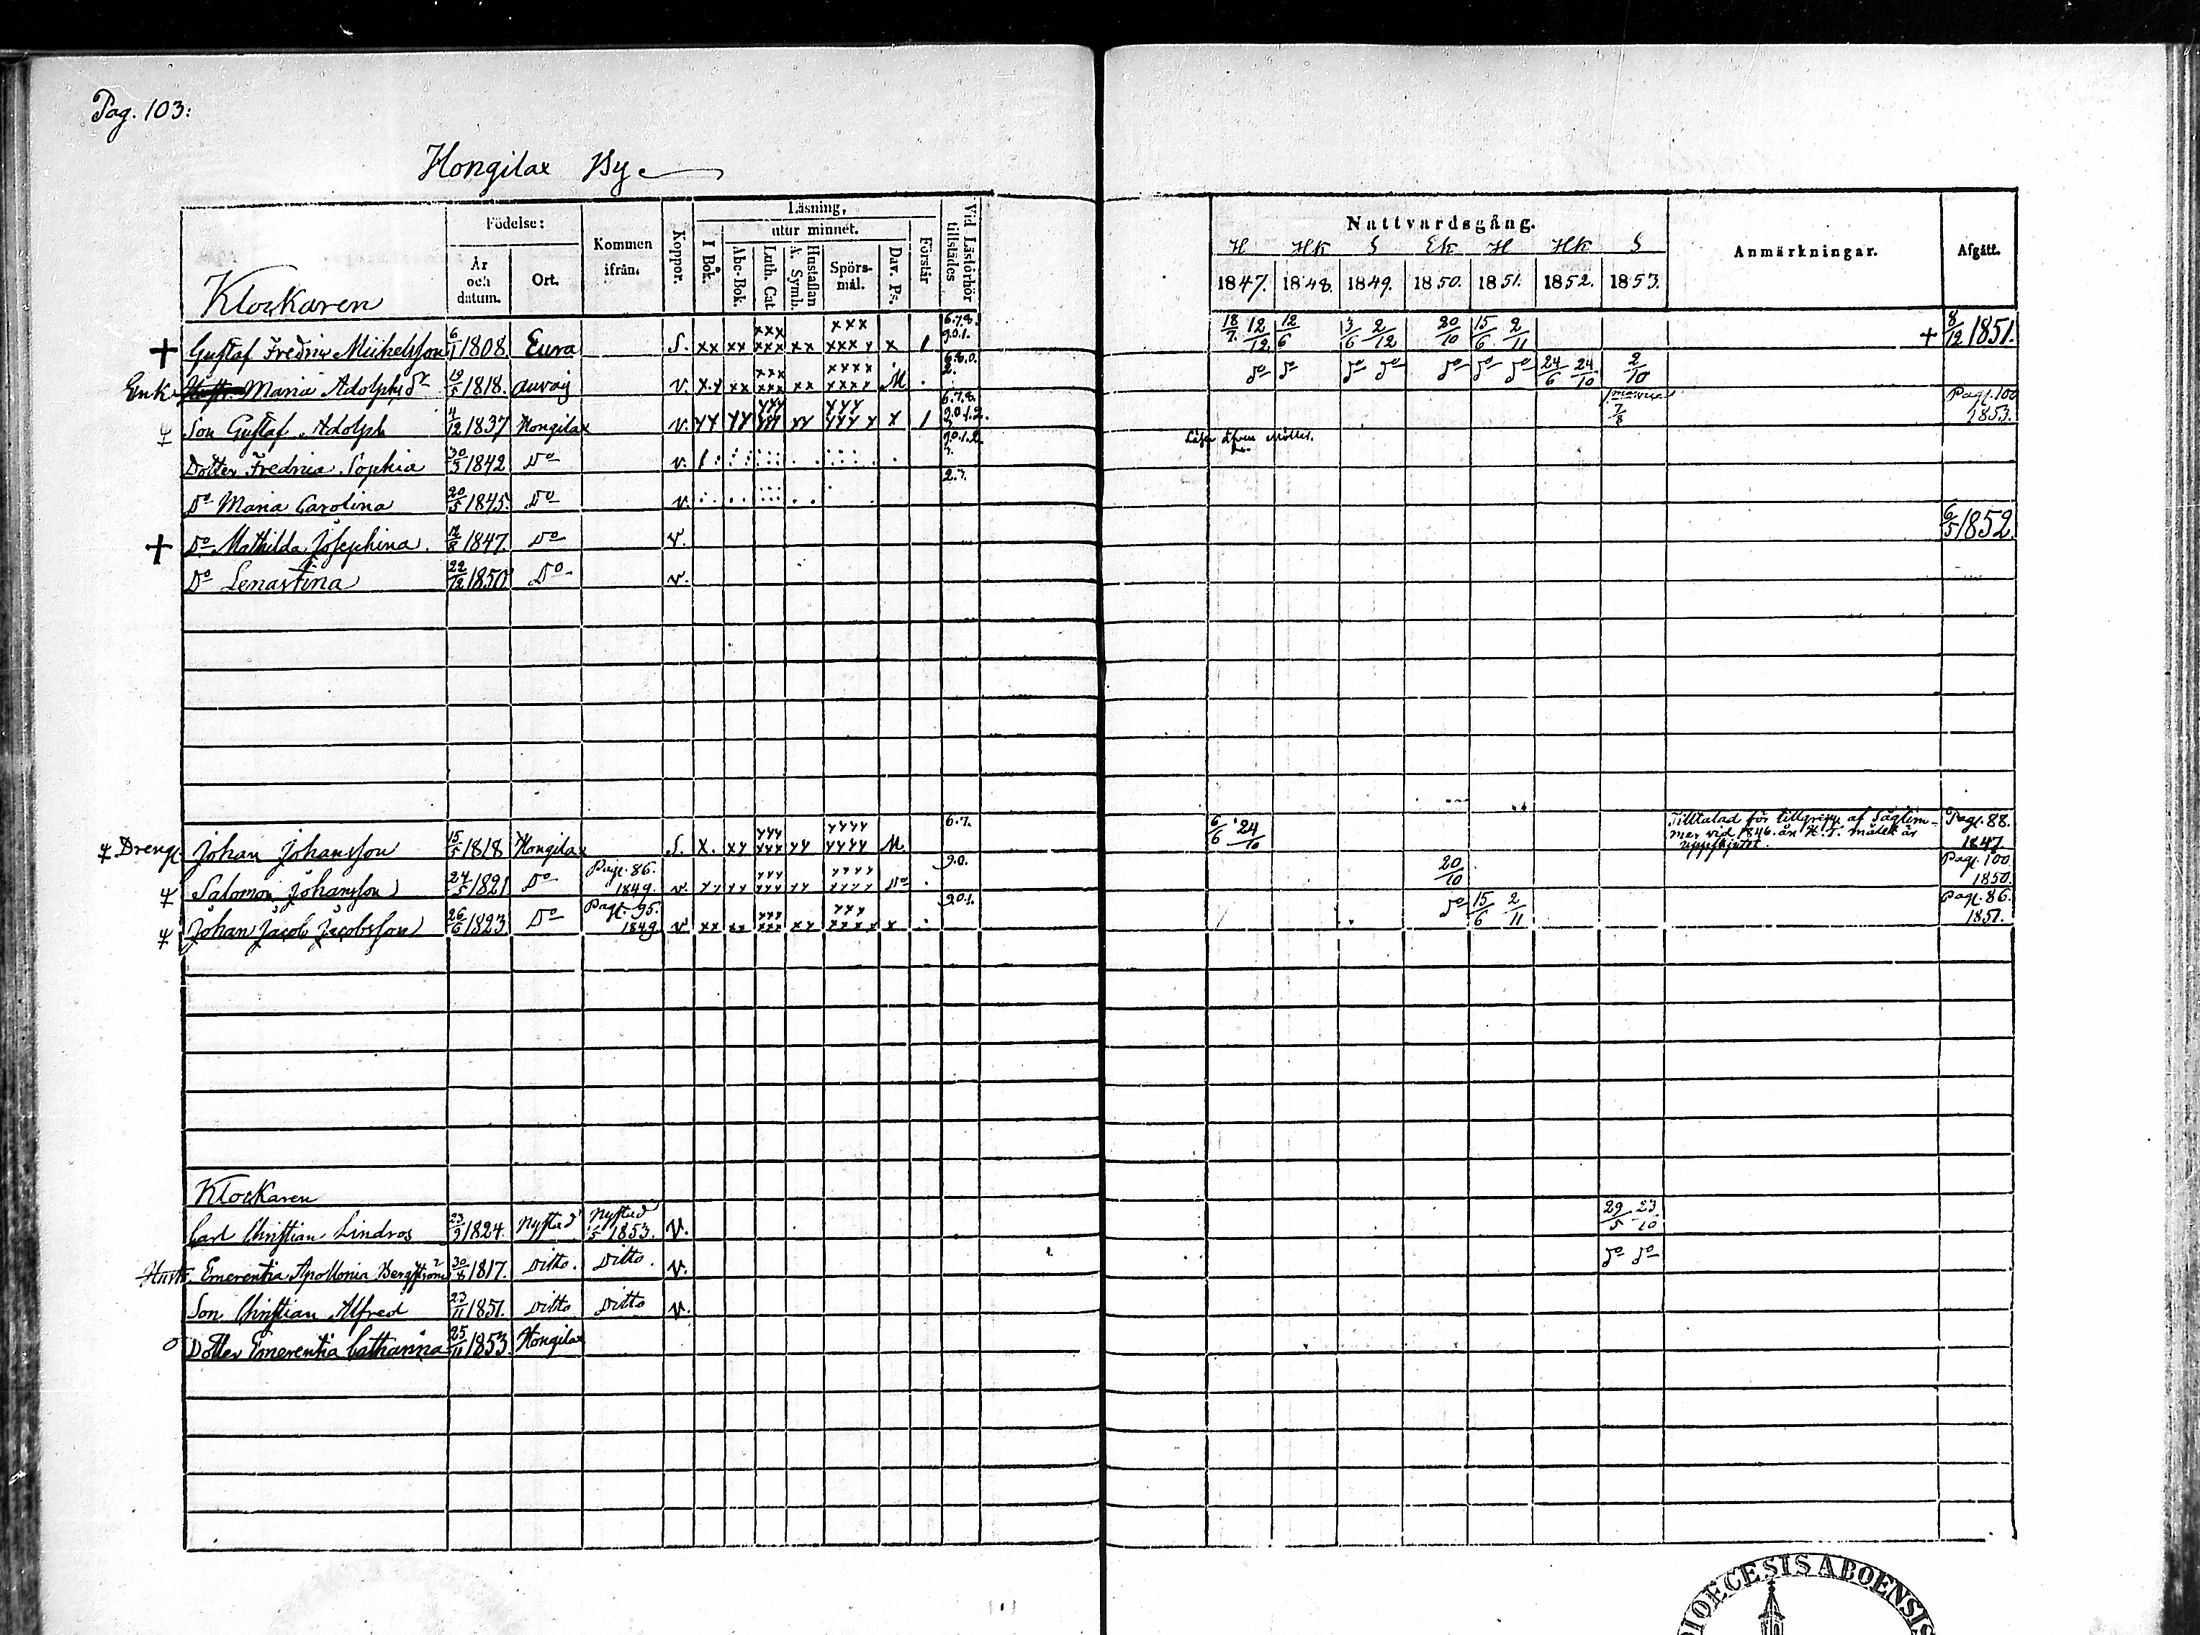 Pag. 103:
Hongilax By
Klockaren
Födelse:
År och datum.
Ort.
Kommen ifrån.
Koppor.
Läsning,
I Bok.
utur minnet.
Abc-Bok.
Luth. Cat.
Hustaflan A. Symb.
Spörs-mål.
Dav. Ps.
Förstår
Vid Läsförhör tillstädes
Nattvardsgång.
H Hk S Ek H Hk S
1847. 1848. 1849. 1850. 1851. 1852. 1853.
Anmärkningar.
Afgått.
+ Gustaf Fredric Michelsson 6/1 1808 Eura S. xx xx xxx xxx xx xxx xxx y x 1 6.7.8. 9.0.1. 18/7. 12/12 12/6 3/6 2/12 20/10 15/6 2/11 + 8/12 1851.
Enk. Hustr. Maria Adolphsdr 19/5 1818. v. x.y xx xxx xxx xx xxxx xxxx M . 6.8.0. 2. do do do do do do do 24/6 24/10 2/10
Son Gustaf Adolph 4/12 1837 Hongilax v. yy yy yyy yyy yy yyy yyy y x 1 6.7.8. 9.0.1.2. 7/8 Pag. 100 1853.
Dotter Fredrica Sophia 30/3 1842 Do v. 9.0.1.2. 3.
Do Maria Carolina 20/5 1845. Do v. 2.3.
+ Do Mathilda Josephina. 1847. Do v. 6/5 1852
Do Lenastina 22/12 1850 Do v.
Dreng. Johan Johansson 15/5 1818 Hongilax S. x. xy yyy xxx yy yyyy yyyy M 6.7. 6/6 24/10 Tilltalad för tillgrepp af Sågtim-
mer vid 1846. års H. T. målet är
uppskjutet. Pag. 88. 1847.
Salomon Johansson 24/5 1821 Do Pag. 86. 1849. v. yy yy yyy yyy yy yyyy yyyy Do . 9.0. 20/10 Pag. 100 1850.
Johan Jacob Jacobsson 26/6 1823 Do Pag. 95. 1849 v xx xx yyy xxx xx yyy xxxx x . 9.0.1. do 15/6 2/11 Pag. 86. 1851.
Klockaren
Carl Christian Lindros 23/9 1824. Nystad Nystad 1853. V. 29/5 23/10
Hustr. Emerentia Apollonia Bergström 30/8 1817. Ditto. Ditto. V. do do
Son Christian Alfred 23/11 1851. Ditto Ditto V.
Dotter Emerentia Catharina 25/11 1853 Hongilax
DIOECESIS ABOENSIS